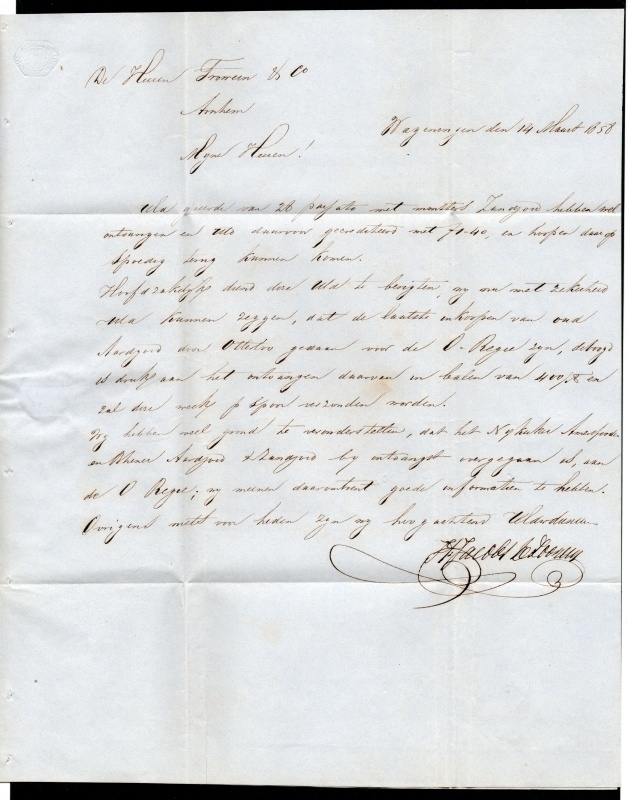 De Heeren Frowein & Co
Arnhem
Wageningen den 14 Maart 1858
Myne Heeren!
Uld geeerde van 26 passato met monsters Zandgoed hebben wel
ontvangen en UEd daarvoor gecrediteerd met 71-40, en hoopen daar op
spoedig terug kunnen komen.
Hoofdzakelyk diend deze Uld te berigten, wy nu met zekerheid
Uld kunnen zeggen, dat de laatste inkoopen van oud
Aardgoed door Otterloo gedaan voor de O-Regie zyn,
is druk aan het ontvangen daarvan in balen van 400 en
zal deze week p spoor verzonden worden.
Wy hebben veel grond te veronderstellen, dat het Nykerker Amersfoorder
en Rhener Aardgoed & Zandgoed by ontvangst overgegaan is, aan
de O Regie; wy meenen daaromtrent goede informatien te hebben.
Overigens niets voor heden zyn wy hoogachtend
Jacobs & Zoonen